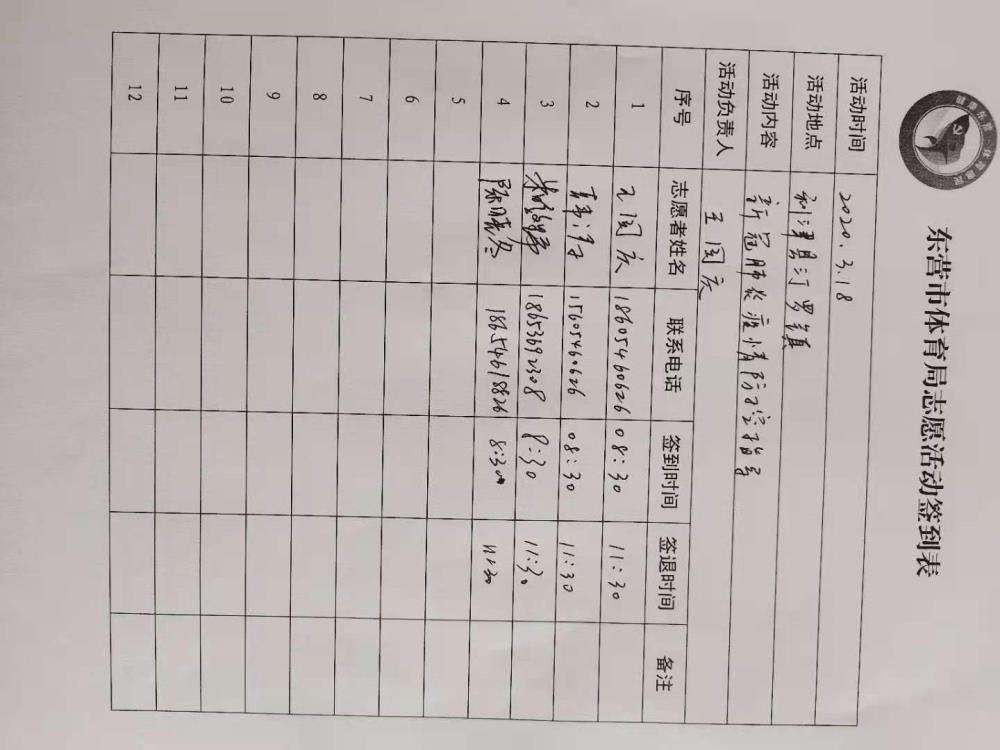 东营市体育局志愿活动签到表
活动时间 2020.3.18
活动地点 利津县汀罗镇
活动内容 新冠肺炎疫情防控指导
活动负责人 王国庆
序号 志愿者姓名 联系电话 签到时间 签退时间 备注
1 王国庆 18605460626 08:30 11:30
2 15605460626 08:30 11:30
3 18653692308 8:30 11:30
4 陈晓冬 18654618826 8:30 11:30
5
6
7
8
9
10
11
12